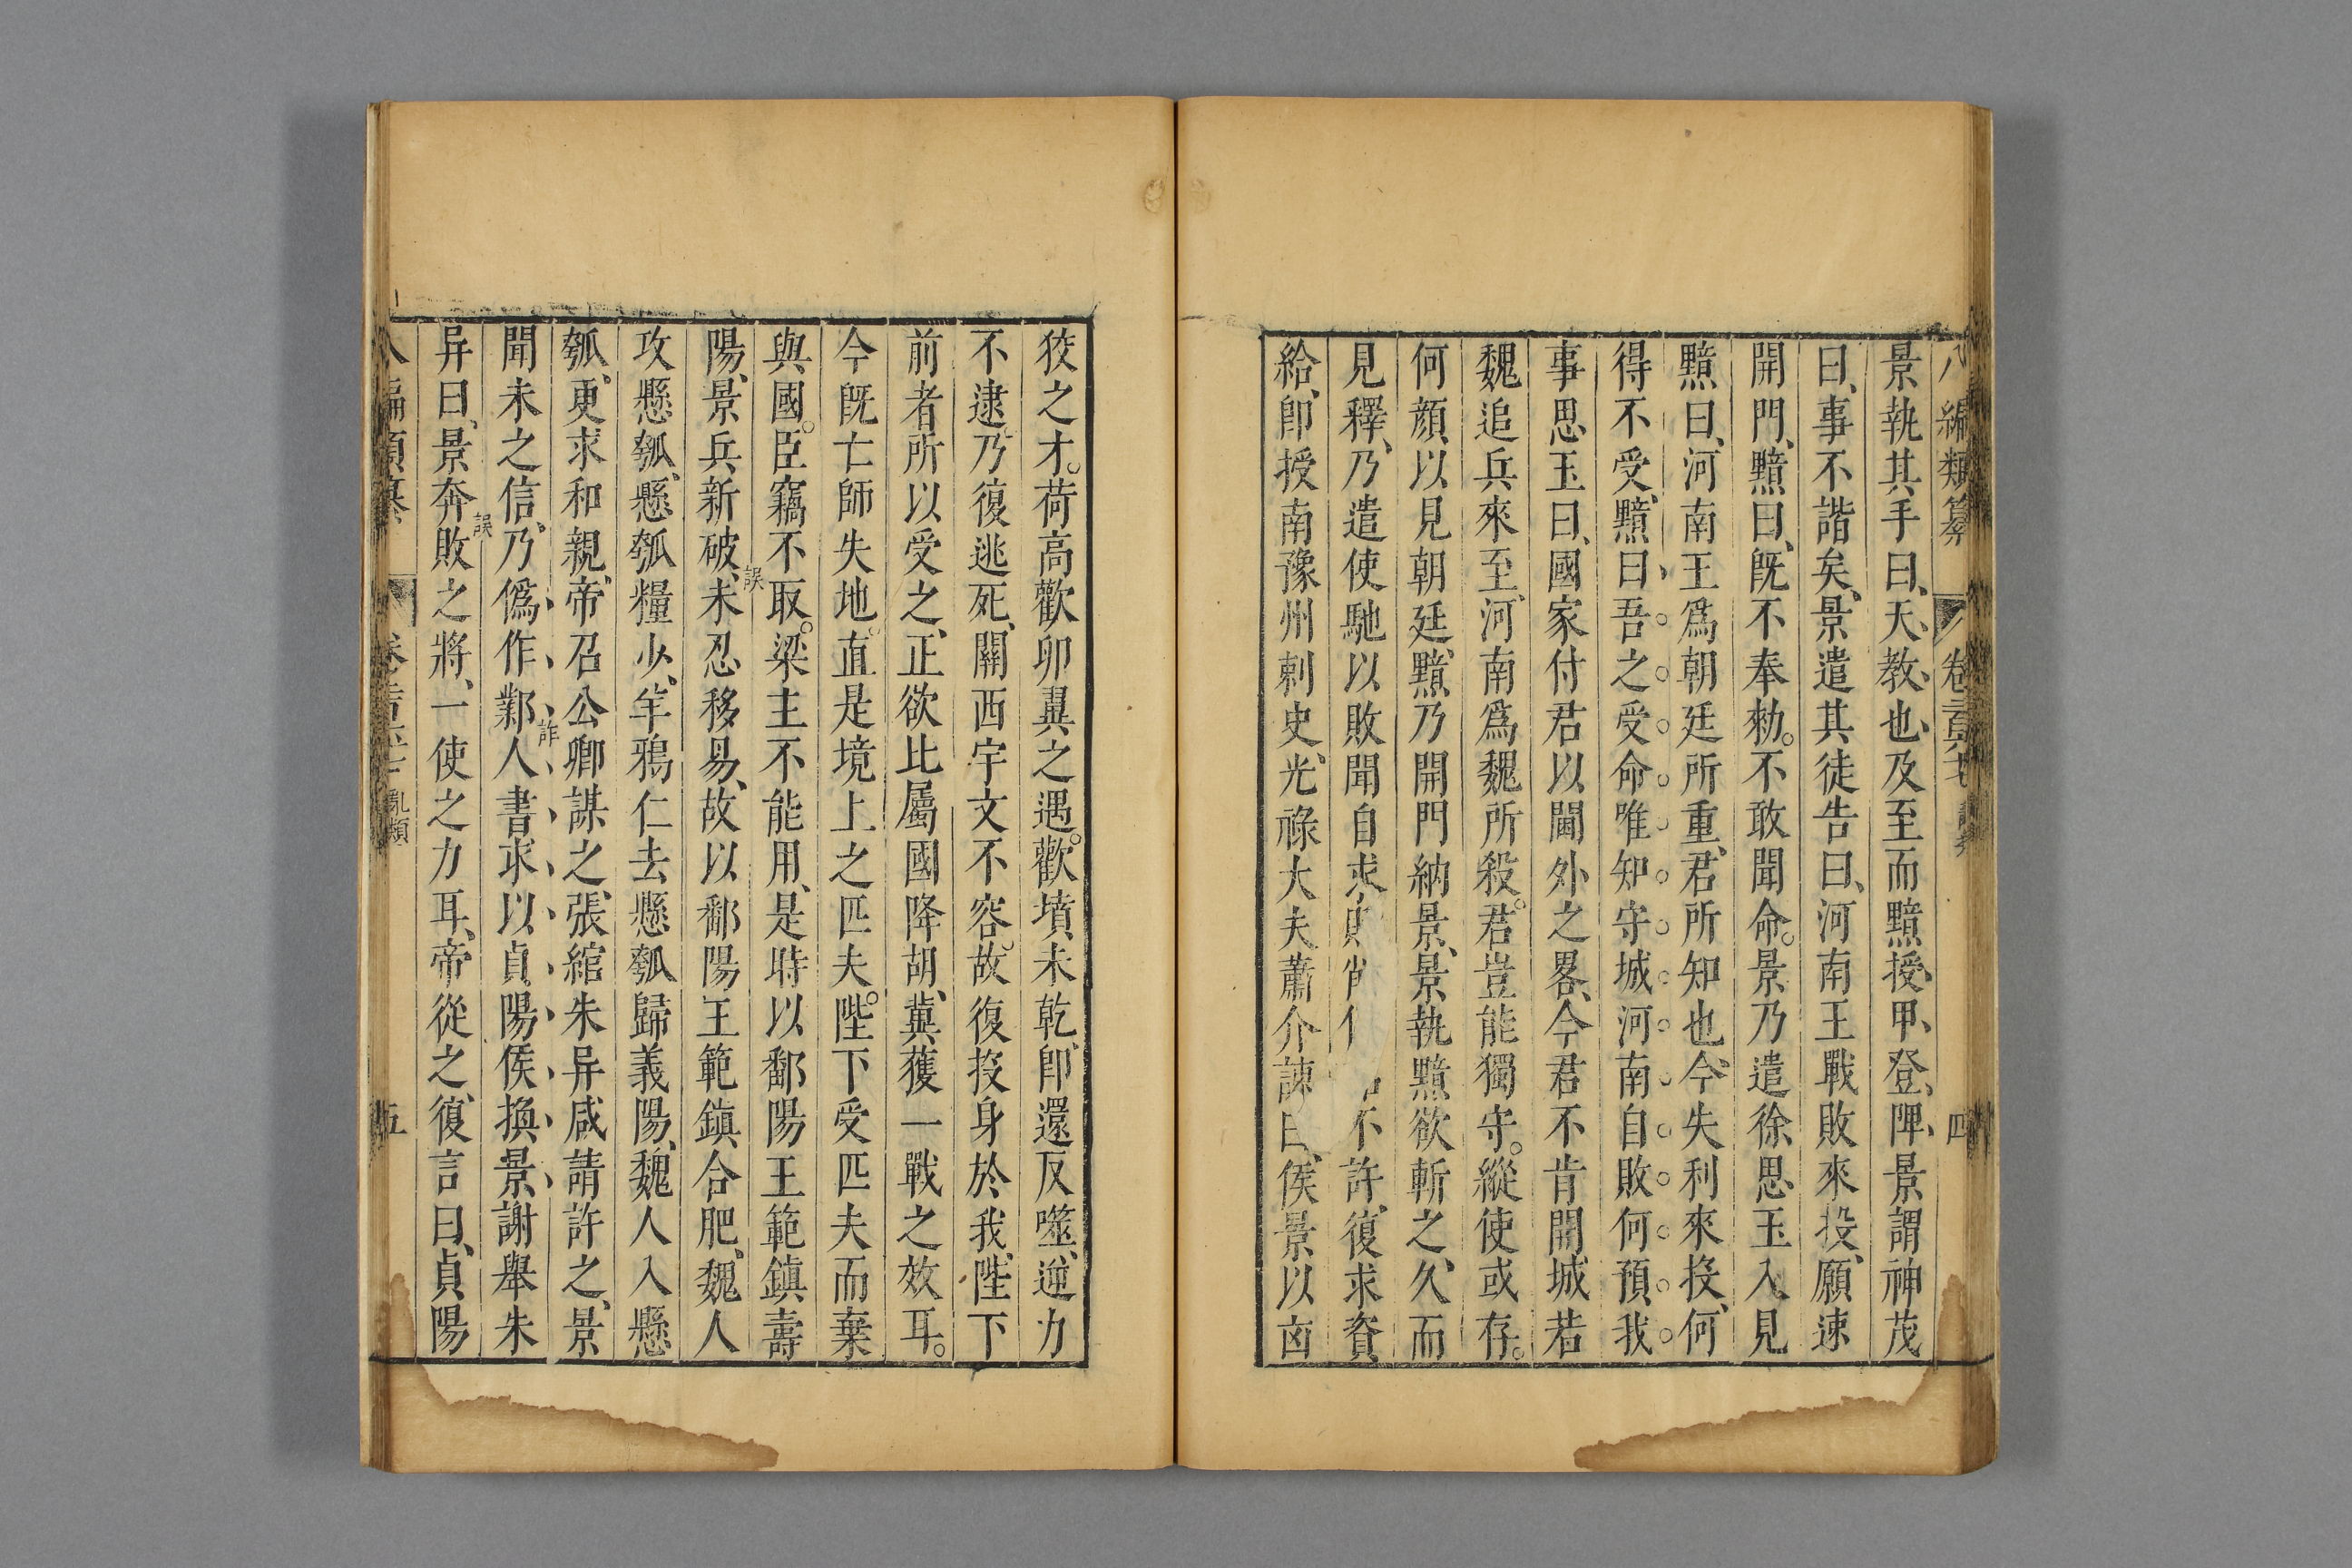 八編類纂
四
景執其手曰、天教也、及至而黯授甲登陴、景謂神茂
曰、事不諧矣、景遣其徒告曰、河南王戰敗來投、願速
開門、黯曰、旣不奉勑。不敢聞命。景乃遣徐思玉入見
黯曰、河南王爲朝廷所重、君所知也、今失利來投、何
得不受、黯曰、吾之受命唯知守城河南自敗何預我
事思玉曰、國家付君以閫外之畧、今君不肯開城若
魏追兵來至、河南爲魏所殺。君豈能獨守。縱使或存。
何顔以見朝廷、黯乃開門納景、景執黯欲斬之、久而
見釋、乃遣使馳以敗聞自求不許、復求資
給、卽授南豫州刺史、光祿大夫蕭介諫曰、侯景以㐫
狡之才。荷高歡卵翼之遇。歡墳未乾、卽還反噬、逆力
不逮。乃復逃死、關西宇文不容。故復投身於我、陛下
前者所以受之、正欲比屬國降胡、冀獲一戰之效耳。
今旣亡師失地。直是境上之匹夫。陛下受匹夫而棄
與國。臣竊不取。梁主不能用、是時以鄱陽王範鎮壽
誤
陽、景兵新破、未忍移易、故以鄱陽王範鎮合肥、魏人
攻懸瓠、懸瓠糧少、羊鴉仁去懸瓠歸義陽、魏人入懸
瓠、更求和親、帝召公卿謀之、張綰朱异咸請許之、景
詐
聞未之信、乃僞作鄴人書求以貞陽侯換景、謝舉朱
誤
异曰、景奔敗之將、一使之力耳、帝從之、復言曰、貞陽
八編類纂
亂類
五